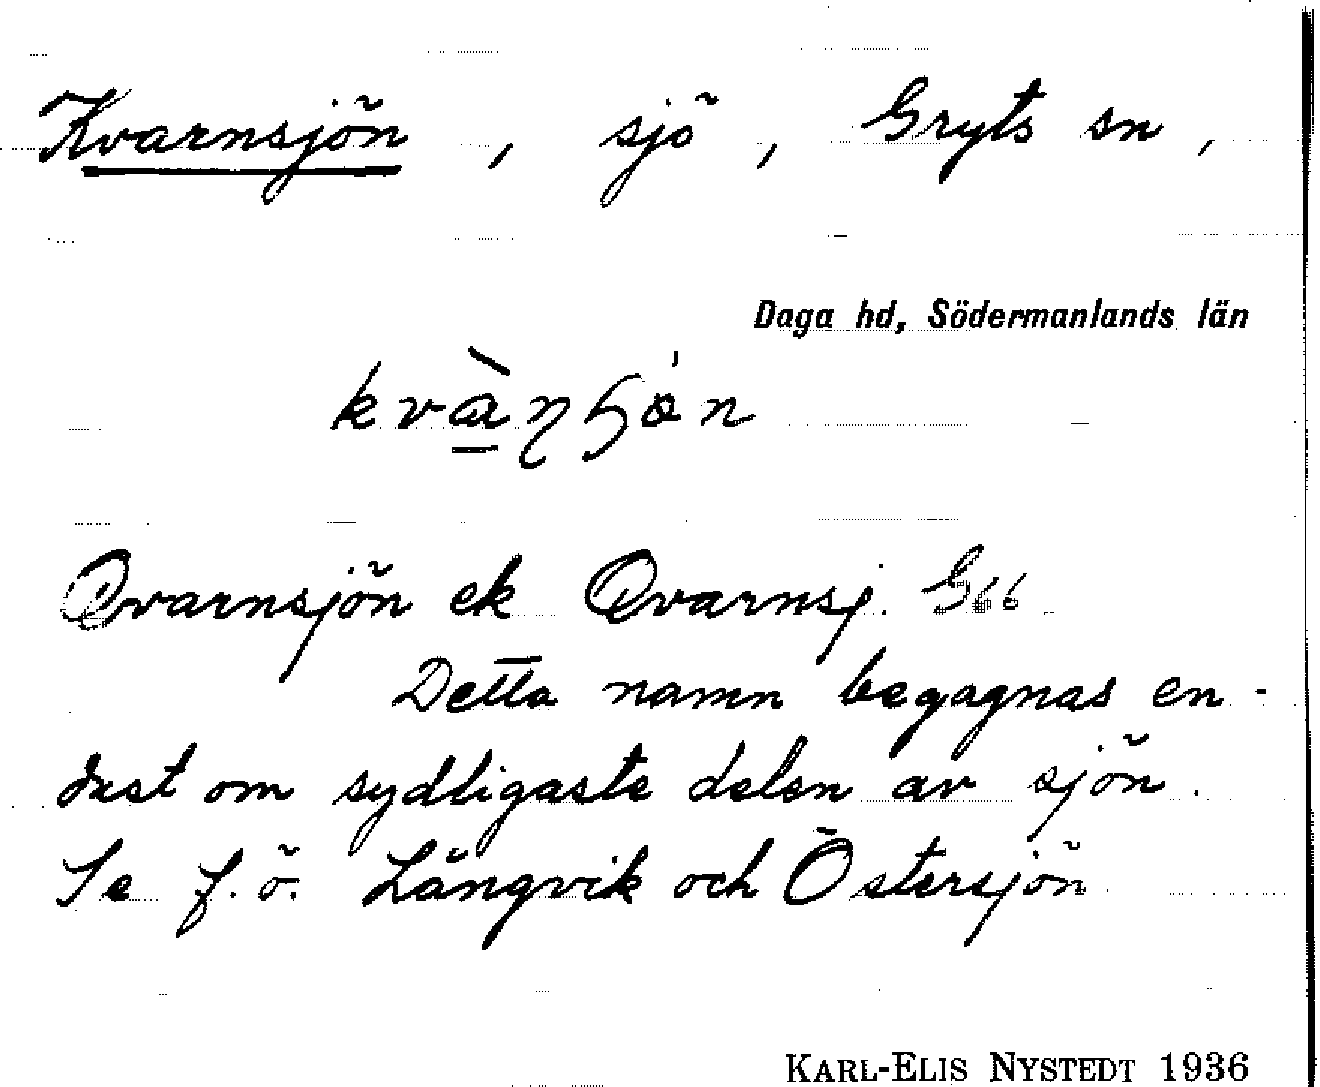 Kvarnsjön, sjö, Gryts sn,
Daga hd, Södermanlands län
Qvarnsjön ek Qvarnsj. G66
Detta namn begagnas en-
dast om sydligaste delen av sjön.
Se f.ö. Långvik och Östersjön
KARL-ELIS NYSTEDT 1936